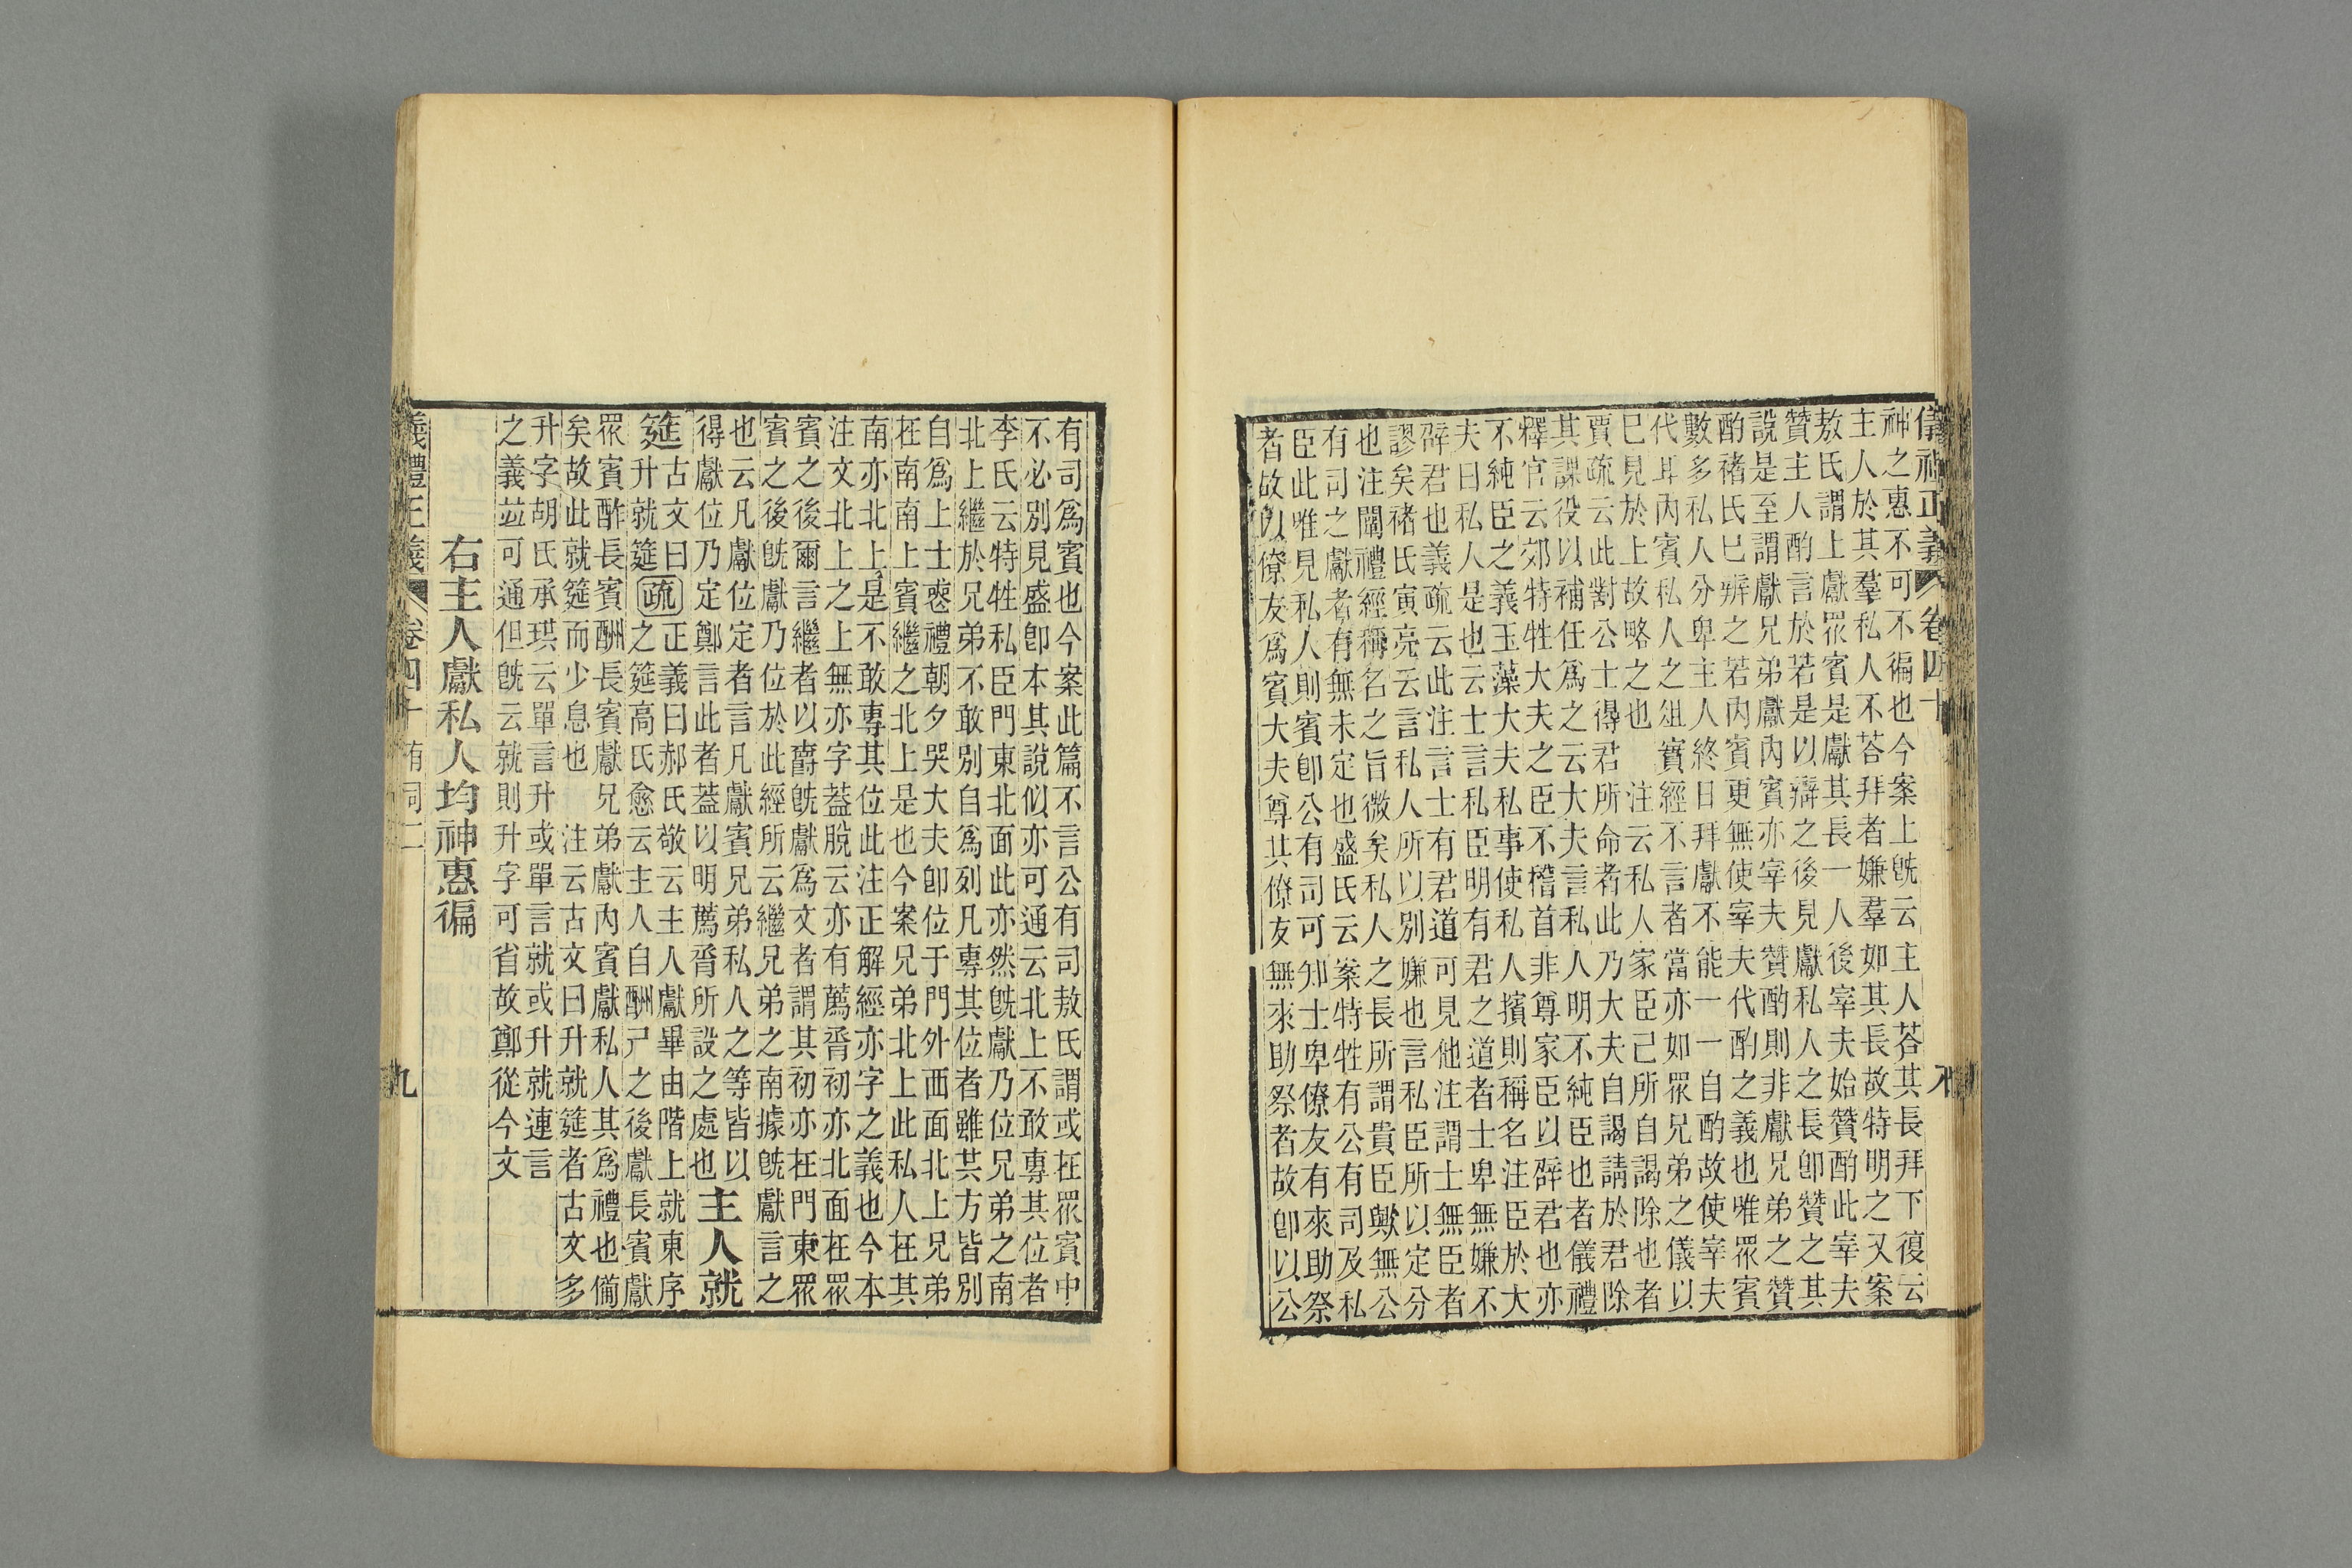 儀禮正義 卷四十
神之惠不可不徧也今案上旣云主人荅其長拜下復云
主人於其羣私人不荅拜者嫌羣如其長故特明之又案
敖氏謂上獻眾賓是獻其長一人後宰夫始贊酌此宰夫
贊主人酌言於若是以辯之後見獻私人之長卽贊之其
說是至謂獻兄弟獻內賓亦宰夫贊酌則非獻兄弟之贊
酌褚氏巳辨之若內賓更無使宰夫代酌之義也唯眾賓
數多私人分卑主人終日拜獻不能一一自酌故使宰夫
代耳內賓私人之俎實經不言者當亦如眾兄弟之儀以
巳見於上故略之也 注云私人家臣己所自謁除也者
賈疏云此對公士得君所命者此乃大夫自謁請於君除
其課役以補任爲之云大夫言私人明不純臣也者儀禮
釋官云郊特牲大夫之臣不稽首非尊家臣以辟君也亦
不純臣之義玉藻大夫私事使私人擯則稱名注臣於大
夫曰私人是也云士言私臣明有君之道者士卑無嫌不
辟君也義疏云此注言士有君道可見他注謂士無臣者
謬矣褚氏寅亮云言私人所以別嫌也言私臣所以定分
也注闡禮經稱名之旨微矣私人之長所謂貴臣歟無公
有司之獻者有無未定也盛氏云案特牲有公有司及私
臣此唯見私人則賓卽公有司可知士卑僚友有來助祭
者故以僚友爲賓大夫尊其僚友無來助祭者故卽以公
有司爲賓也今案此篇不言公有司敖氏謂或在眾賓中
不必別見盛卽本其說似亦可通云北上不敢專其位者
李氏云特牲私臣門東北面此亦然旣獻乃位兄弟之南
北上繼於兄弟不敢別自爲列凡專其位者雖其方皆別
自爲上士喪禮朝夕哭大夫卽位于門外西面北上兄弟
在南南上賓繼之北上是也今案兄弟北上此私人在其
南亦北上是不敢專其位此注正解經亦字之義也今本
注文北上之上無亦字葢脫云亦有薦脀初亦北面在眾
賓之後爾言繼者以爵旣獻爲文者謂其初亦在門東眾
賓之後旣獻乃位於此經所云繼兄弟之南據旣獻言之
也云凡獻位定者言凡獻賓兄弟私人之等皆以
得獻位乃定鄭言此者葢以明薦脀所設之處也主人就
筵古文曰疏正義曰郝氏敬云主人獻畢由階上就東序
升就筵之筵高氏愈云主人自酬尸之後獻長賓獻
眾賓酢長賓酬長賓獻兄弟獻內賓獻私人其爲禮也備
矣故此就筵而少息也 注云古文曰升就筵者古文多
升字胡氏承珙云單言升或單言就或升就連言
之義竝可通但旣云就則升字可省故鄭從今文
右主人獻私人均神惠徧
儀禮正義 卷四十 有司二 九